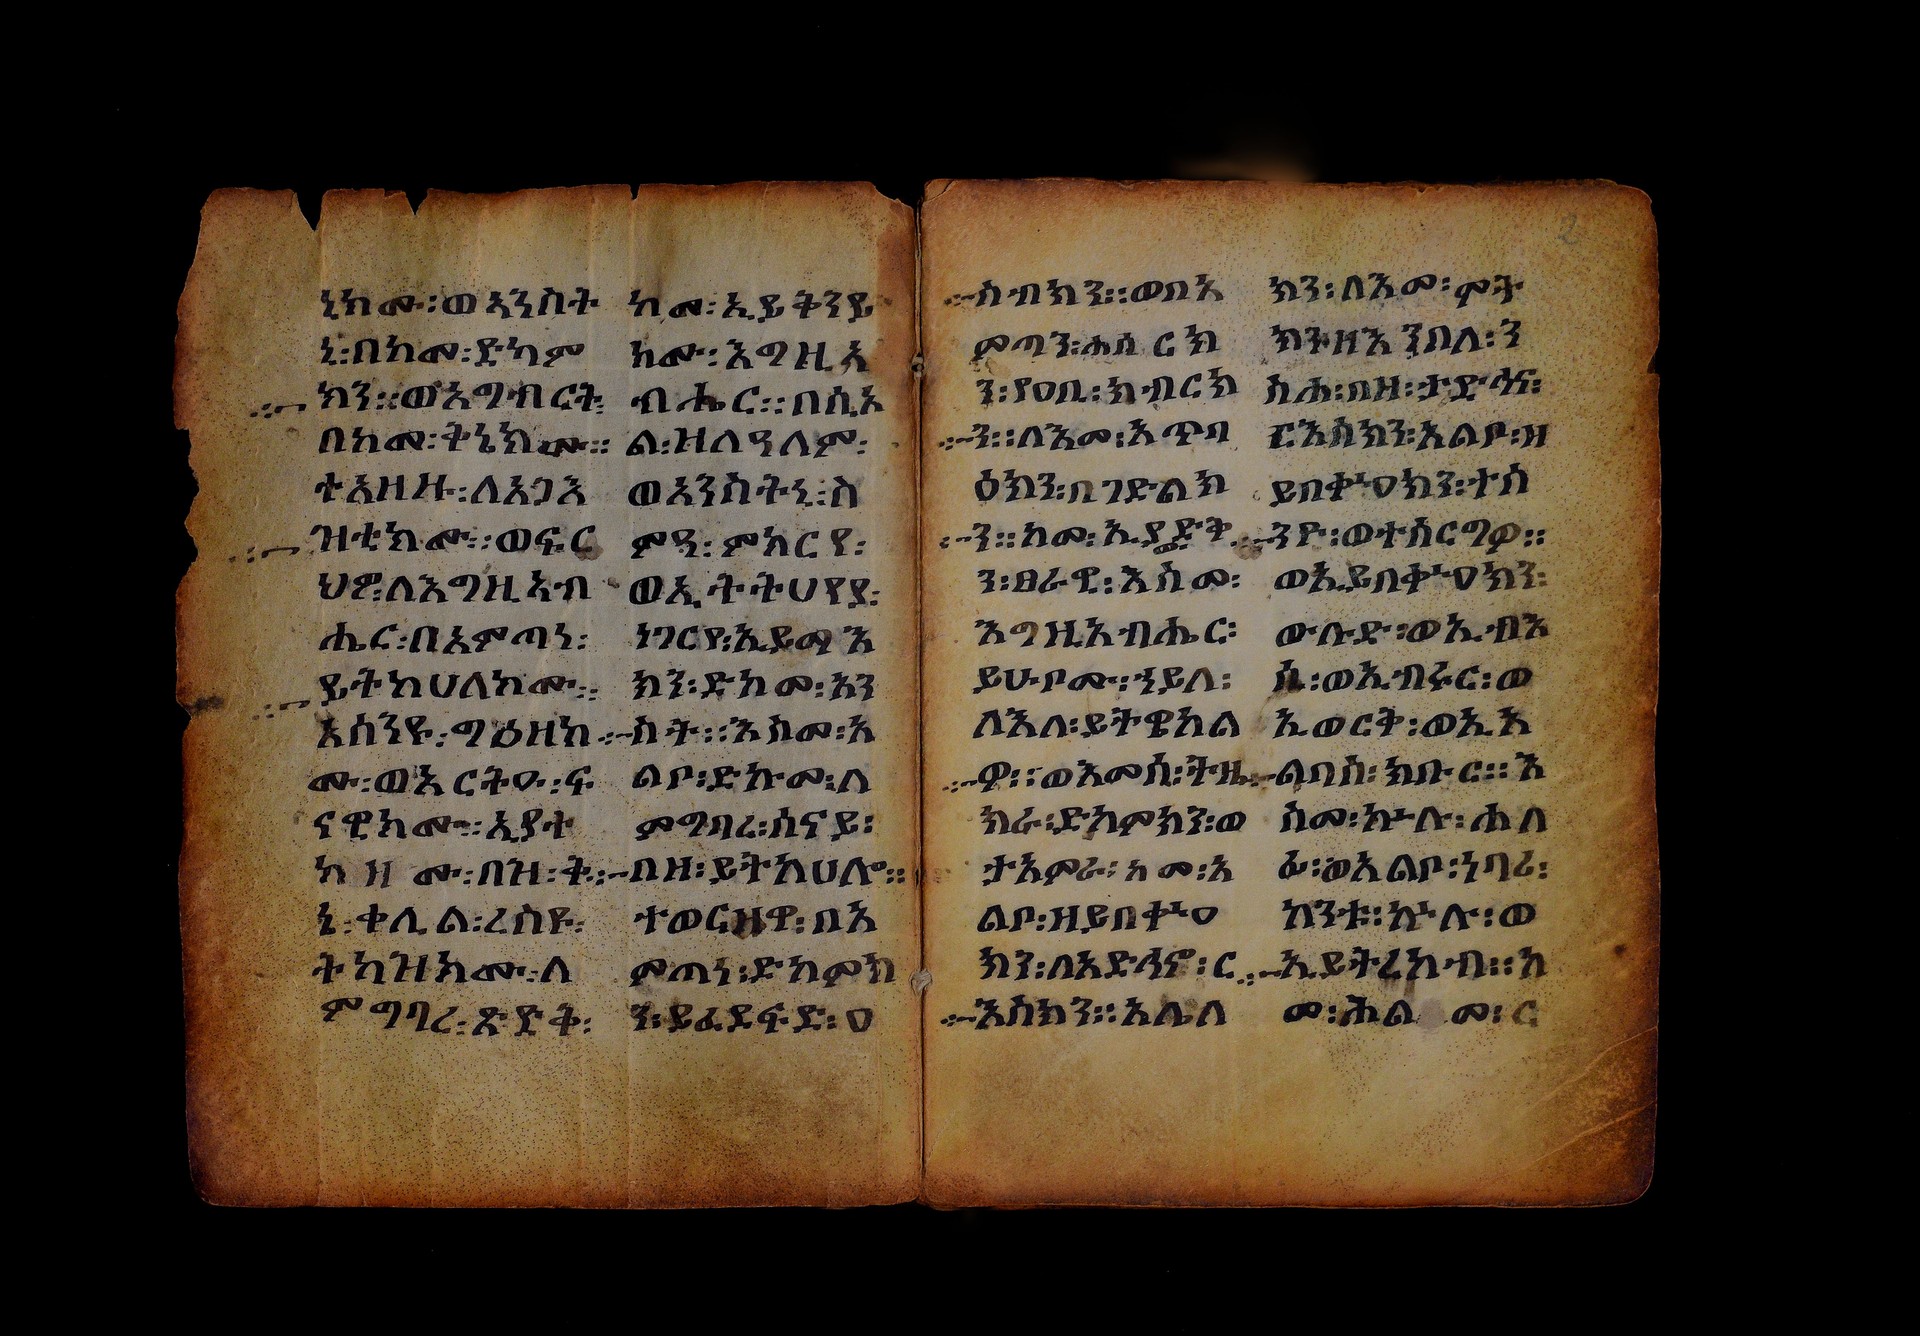 ኒክሙ፡ወእንስት
ኒ፡በከመ፡ድካም
ክን፡፡ወአግብርት
በከመ፡ትኔክሙ፡፡
ተአዘዙ፡ለአጋእ
ዝቲክሙ፡፡ወፍር
ህዎ፡ለእግዚኣብ
ሔር፡በአምጣነ፡
ይትከሀለክሙ፡፡
እስንዩ፡ግዕዘክ
ሙ፡ወአርትዑ፡ፍ
ናዊክሙ፡፡ኢያተ
ዘሙ፡በዝ፡
ቀሊል፡ረስዩ፡
ምግባረ፡ጽድቅ፡
ከመ፡ኢይትንይ
ከሙ፡እግዚአ
ብሔር፡፡በሲኦ
ል፡ዝለዓለም፡
ወአንስትኒ፡ስ
ምዓ፡ምክርየ፡
ወኢትትሀየያ፡
ነገርየ፡ኢይማእ
ክን፡ድከመ፡አን
ስት፡፡እስመ፡አ
ልቦ፡ድኩመ፡ለ
ምግባረ፡ሰናይ፡
በዘ፡ይትከሀሎ፡፡
ተወርዘዋ፡በአ
ምጣነ፡ድከምክ
ን፡ይፈደፍድ፡ዐ
ስብክን፡፡ወበአ
ምጣን፡ሐሰርክ
ን፡የዐቢ፡ክብርክ
ን፡፡ለእመ፡አጥባ
ዕክን፡በገድልክ
ን፡፡ከመ፡ኢያድቅ
ን፡ፀራዊ፡እስመ፡
እግዚአብሔር፡
ይሁቦሙ፡ኃይለ፡
ለእለ፡ይትዌከል
ዎ፡፡ወእመሰ፡ትዜ
ክራ፡ድክምክን፡ወ
ታአምራ፡ከመ፡አ
ልቦ፡ዘይበቍዐ
ክን፡ለአድኅኖ፡ር
እስክን፡፡አሌለ
ክን፡ለእመ፡ሞት
ክንትዘእንበለ፡ን
ስሐ፡በዘ፡ታድኅና፡
ርእስክን፡አልቦ፡ዘ
ይበቍዐክን፡ተስ
ንዮ፡ወተሰርግዎ፡፡
ወኢይበቍዐክን፡
ውሉድ፡ወኢብእ
ሲ፡ወኢብሩር፡ወ
ኢወርቅ፡ወኢአ
ልባስ፡ክቡር፡፡እ
ስመ፡ኵሉ፡ሐለ
ፊ፡ወአልቦ፡ነባሪ፡
ከንቱ፡ኵሉ፡ወ
ኢይትረከብ፡፡ከ
መ፡ሕልመ፡ር
2